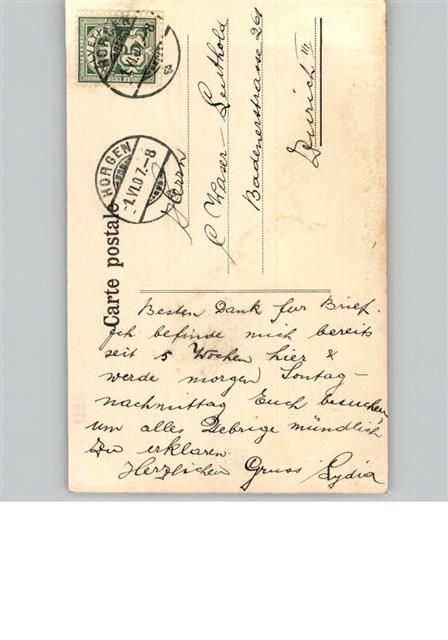 HELVETIA
5
HORGEN
HORGEN
-1.VI.07.-8
Carte postale
Herrn
C Weser-Leuthold
Badenerstrasse 269
Zürich III
Besten Dank fur Brief.
Ich befinde mich bereits
seit 5 Wochen hier &
werde morgen Sontag-
nachmittag Euch besuchen,
um alles Uebrige mündlich
zu erklaren.
Herzlichen Gruss Lydia